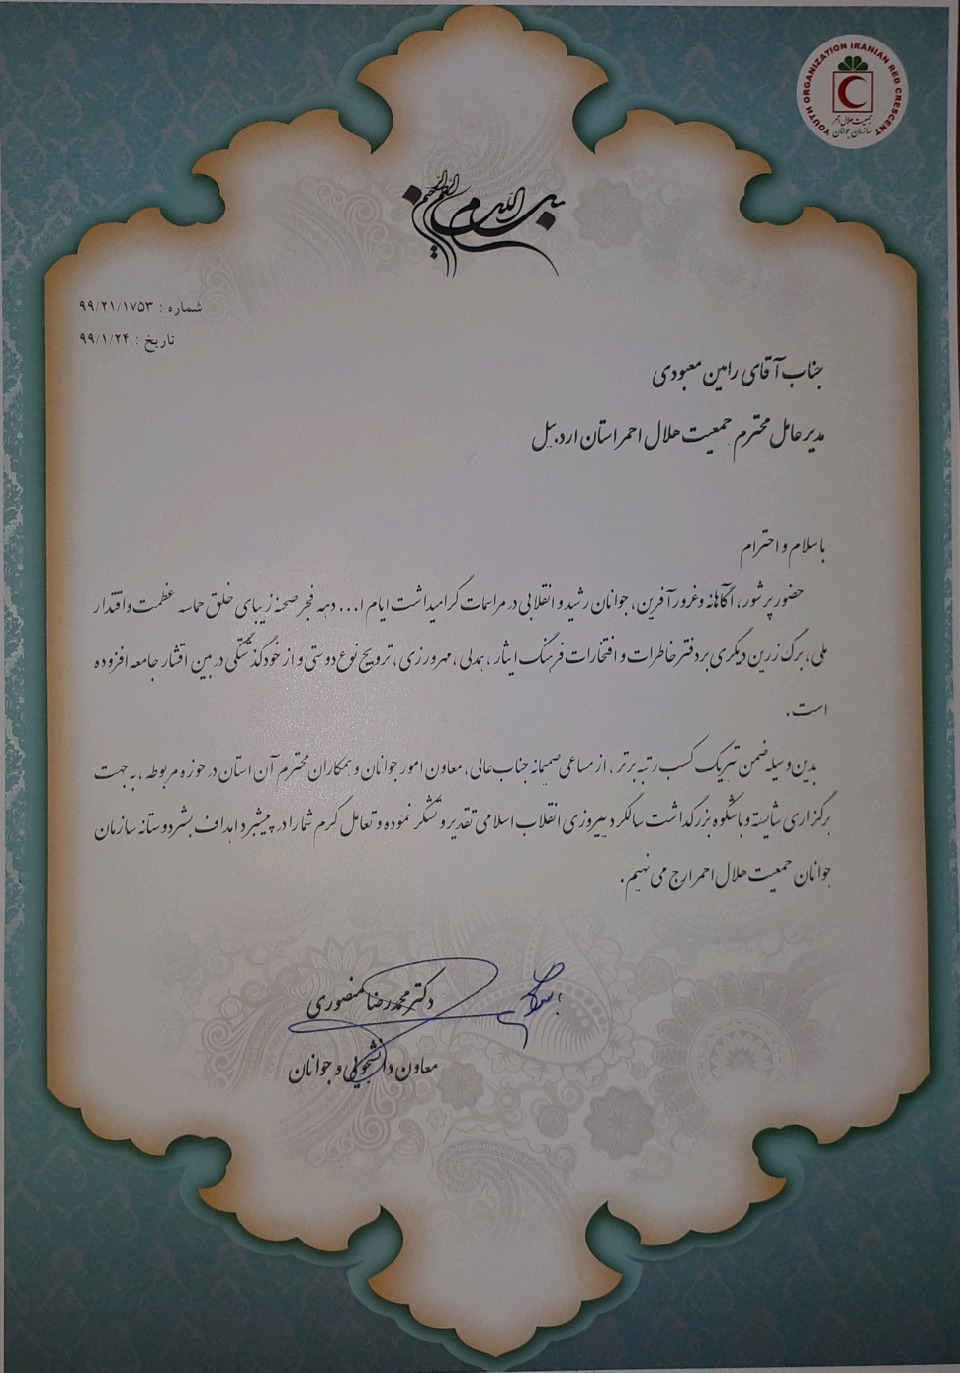 YOUTH ORGANIZATION IRANIAN RED CRESCENT
جمعیت هلال احمر
سازمان جوانان
بسم الله الرحمن الرحیم
شماره : ۹۹/۲۱/۱۷۵۳
تاریخ : ۹۹/۱/۲۴
جناب آقای رامین معبودی
مدیر عامل محترم جمعیت هلال احمر استان اردبیل
با سلام و احترام
حضور پرشور، آگاهانه و غرور آفرین، جوانان رشید و انقلابی در مراسمات گرامیداشت ایام ا... دهه فجر صحنه زیبای خلق حماسه عظمت و اقتدار
ملی، برگ زرین دیگری بر دفتر خاطرات و افتخارات فرهنگ ایثار، همدلی، مهرورزی، ترویج نوع دوستی و از خودگذشتگی در بین اقشار جامعه افزوده
است.
بدین وسیله ضمن تبریک کسب رتبه برتر، از مساعی صمیمانه جناب عالی، معاون امور جوانان و همکاران محترم آن استان در حوزه مربوطه، به جهت
برگزاری شایسته و باشکوه بزرگداشت سالگرد پیروزی انقلاب اسلامی تقدیر و تشکر نموده و تعامل کرم شما را در پیشبرد اهداف بشردوستانه سازمان
جوانان جمعیت هلال احمر ارج می نهیم.
دکتر محمدرضا منصوری
معاون دانشجویی و جوانان